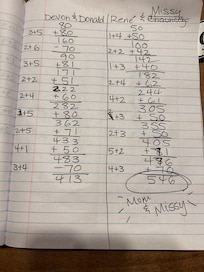 Devon & Donald
80
3+5 +80
160
2+6 -70
90
3+5 +81
171
2+2 +51
222
2+4 +60
282
1+5 +80
362
2+5 +71
433
4+1 +50
483
3+4 -70
413
Missy
René &
50
1+4 +50
100
2+2 +42
142
1+3 +40
182
2+4 +62
244
4+2 +61
305
+3
2+3 +50
405
5+2
4+3 +70
546
Mom
& Missy